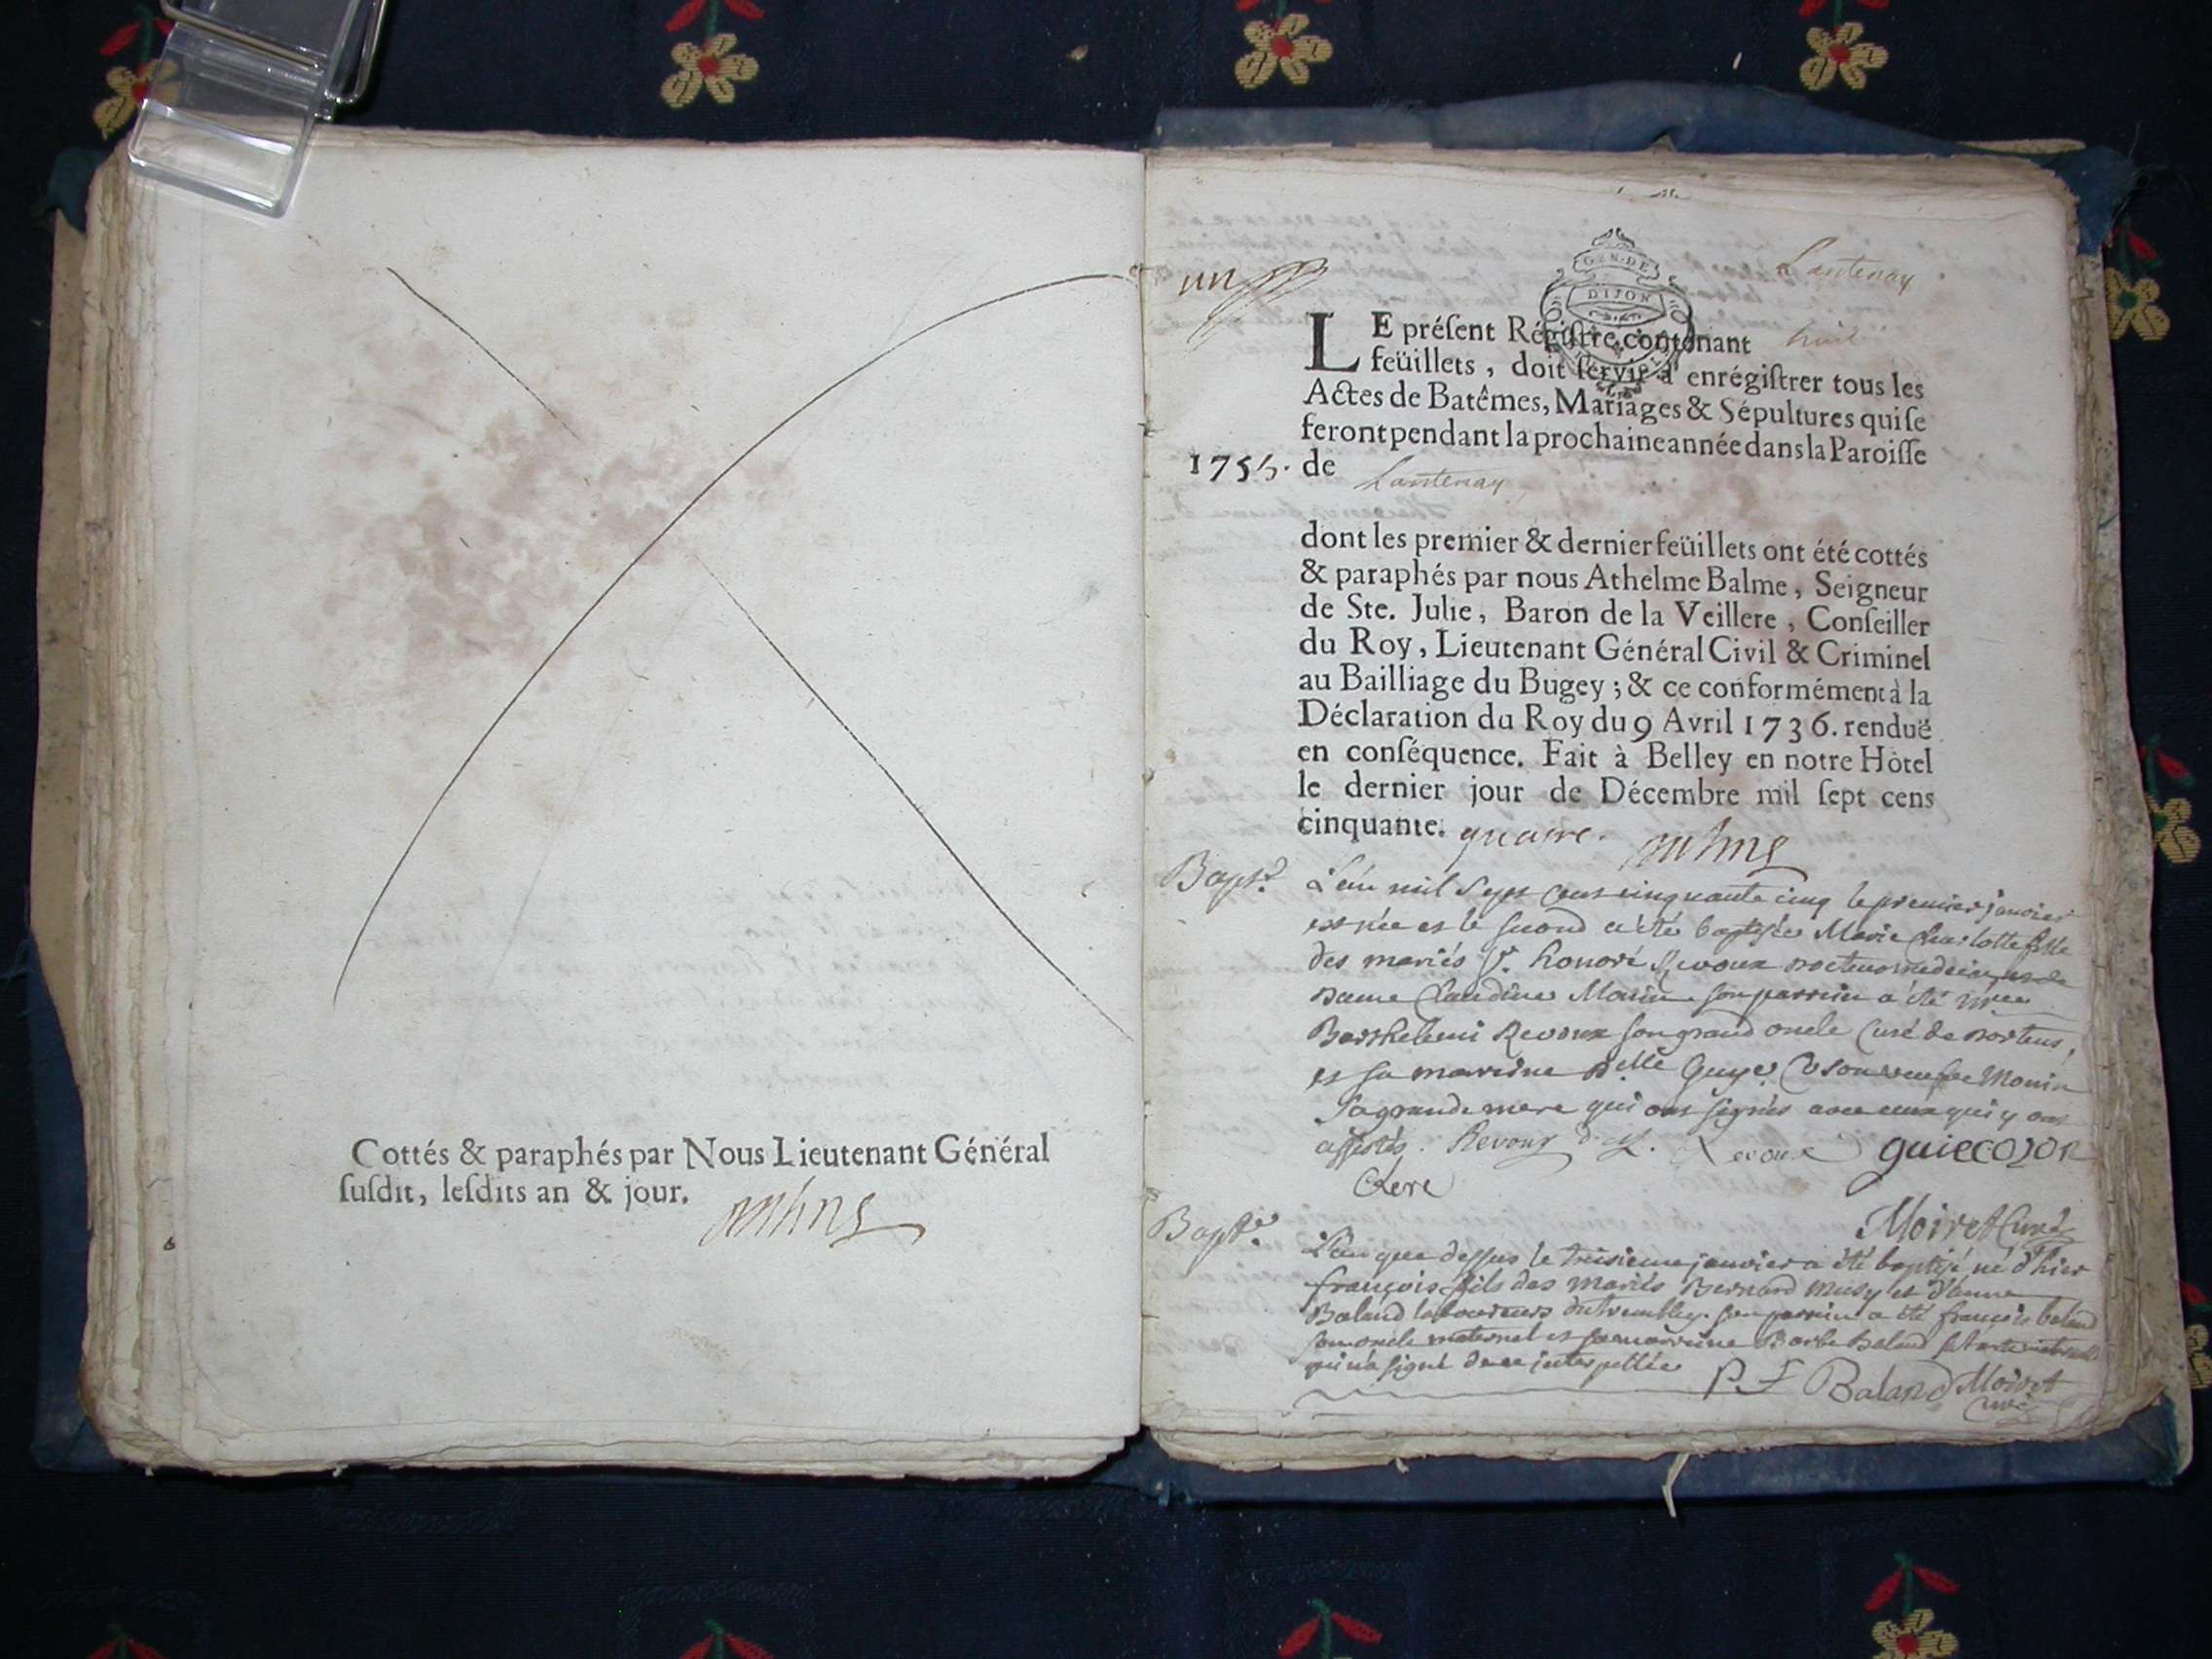 Cottés & paraphés par Nous Lieutenant Général
ſuſdit, leſdits an & jour.
un
Lantenay
GEN. DE
DIJON
LE préſent Régiſtre contenant huit
feüillets, doit ſervir à enrégiſtrer tous les
Actes de Batêmes, Mariages & Sépultures qui ſe
feront pendant la prochaine année dans la Paroiſſe
1755. de Lantenay
dont les premier & dernier feüillets ont été cottés
& paraphés par nous Athelme Balme, Seigneur
de Ste. Julie, Baron de la Veillere, Conſeiller
du Roy, Lieutenant Général Civil & Criminel
au Bailliage du Bugey; & ce conformément à la
Déclaration du Roy du 9 Avril 1736. renduë
en conſéquence. Fait à Belley en notre Hôtel
le dernier jour de Décembre mil ſept cens
cinquante. quatre.
Bapt.e L'an mil sept cens cinquante cinq le premier janvier
est née et le second a été baptisée Marie Charlotte fille
des mariés Sr. honoré Revoux docteur medecin et de
Dame Claudine Monin son parrin a été mre
Barthelemi Revoux son grand oncle Curé de Nortens,
et sa marrine Delle Guye veuve Monin
sa grande mere qui ont signés avec ceux qui y ont
assistés. Revoux Revoux guiecozon
Clere
Moiret Curé
Bapt.e L'an que dessus le troisieme janvier a été baptisé né d'hier
françois fils des mariés Bernard Musy et d'anne
Baland laboureurs du tremblay son parrin a été françois baland
son oncle maternel et sa marrine Barbe Baland sa tante maternelle
qui n'a signé de ce interpellée P F Baland Moiret
Curé